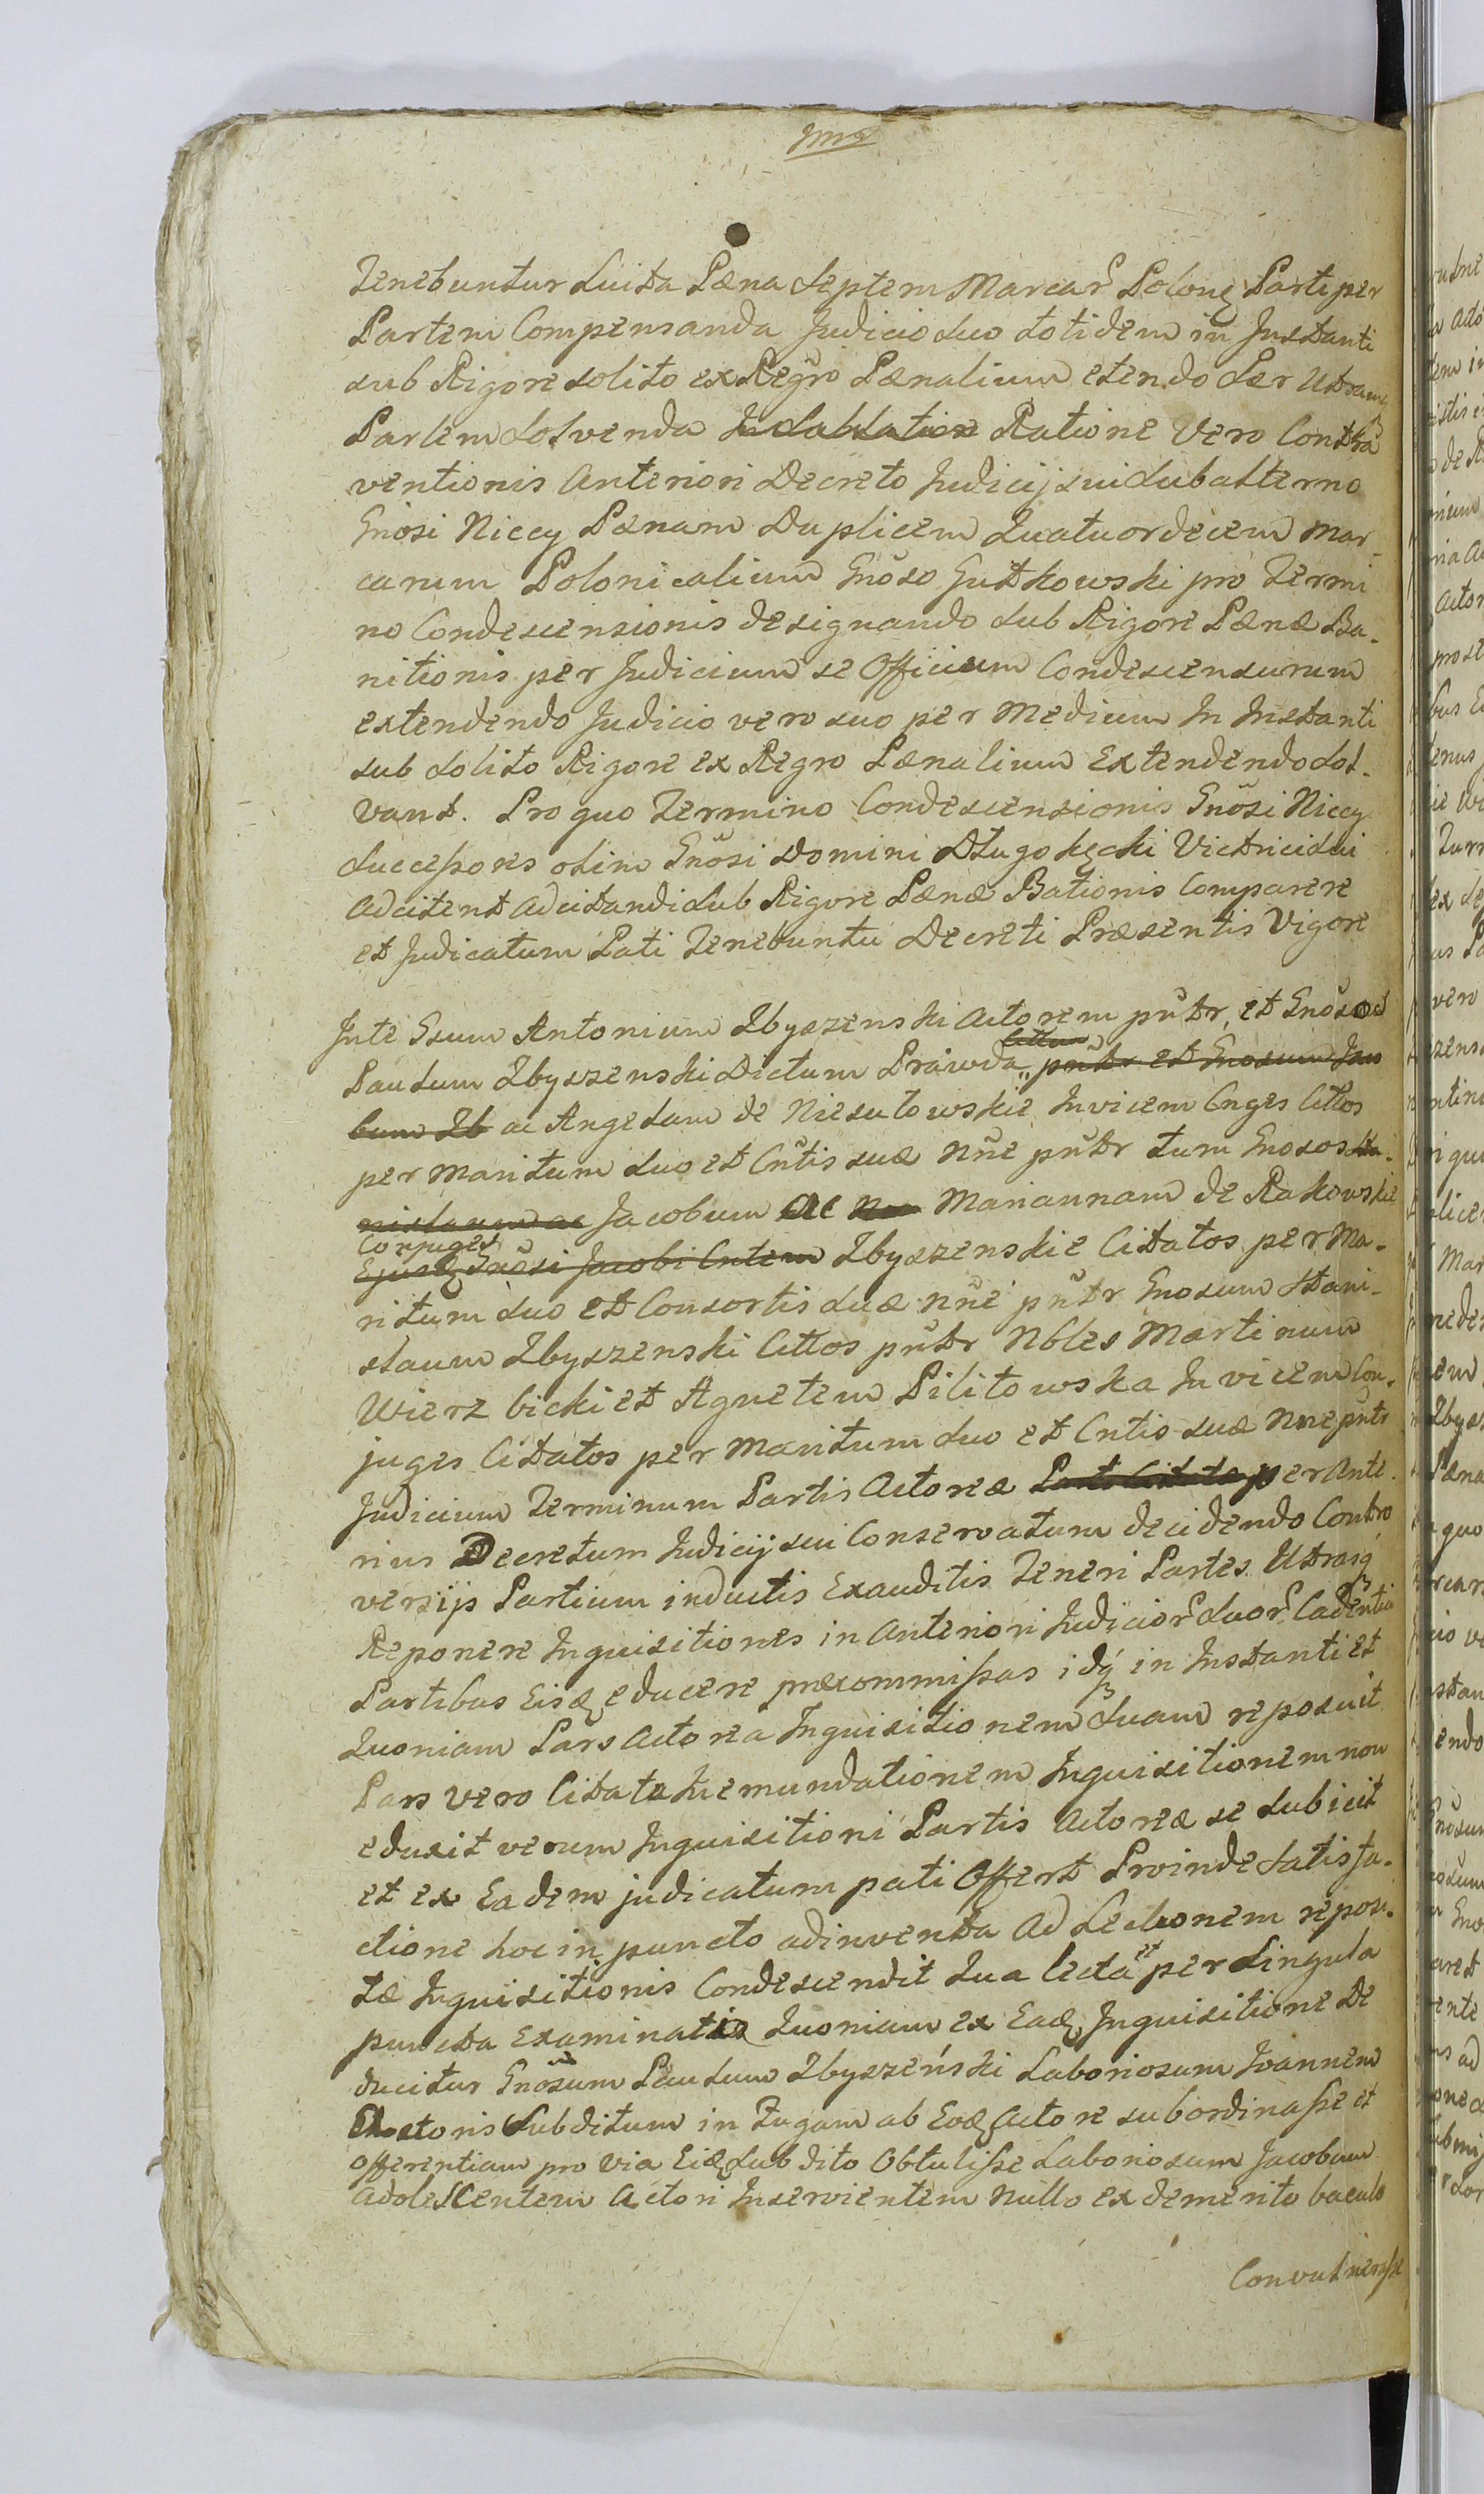 Tenebuntur Luita Pæna Septem Marcar Polonę Parti per
Partem Compensanda Judicio suo totidem in Instanti
sub Rigore solito ex Regro Pænalium etendo Per Utram
Partem Solvenda Ratione Vero Contra
ventionis Anteriori Decreto Judicij sui Subalterno
Gnosi Niccy Pænam Duplicem Quatuordecem Mar-
carum Polonicalium Gnoso Gutkowski pro Termi
no Condescensionis designando Sub Rigore Pænæ Ba-
nitionis per Judicium se Officium Condescensurum
extendendo Judicio vero suo per Medium In Instanti
sub Solito Rigore ex Regro Pænalium Extendendo Sol-
vant. Pro quo Termino Condescensionis Gnosi Niccy
Successores olim Gnosi Domini Długokęcki Victrici sui
Adcitent adcitandi Sub Rigore Pænæ Bationis Comparere
et Judicatum Pati Tenebuntu Decreti Præsentis Vigore
Inte Gsum Antonium Zbyszenski Actorem pntr, et Gnosos
Paulum Zbyszenski Dictum Prawda cittum pntr et Gnosum Jaco
bum Zb ac Angelam de Niesułowskie Invicem Cnges Cittos
per Maritum suo et Cntis suæ nne pntr tum Gnosos Sta-
nislaum ac Jacobum ac Mariannam de Rakowskie
Conjuges
Ejusdę Gnosi Jacobi Cntem Zbyszenskie Citatos per Ma-
ritum suo et Consortis suæ nne pntr Gnosum Stani-
slaum Zbyszenski Cittos pntr Nbles Martinum
Wierzbicki et Agnetem Pilitowska Invicem Con-
juges Citatos per Maritum suo et Cntis suæ nne pntr
Judicium Terminum Partis Actoreæ per Ante-
rius Decretum Judicij sui Conservatum decidendo Contro
versijs Partium inductis Exauditis Teneri Partes Utrasq
Reponere Inquisitiones in Anteriori Judicior Suor Cadentia
Partibus Eisdę educere præcommissas idq in Instanti et
Quoniam Pars Actorea Inquisitionem Suam reposuit
Pars vero Citata Inemundationem Inquisitionem non
eduxit verum Inquisitioni Partis Actoreæ se Subicit
et ex Eadem judicatum pati Offert Proinde Satisfa-
ctione hoc in puncto adinventa Ad Lectionem reposi-
tæ Inquisitionis Condescendit Qua lecta et per Singula
puncta Examinatis Quoniam ex Eadę Inquisitione De
ducitur Gnosum Paulum Zbyszeński Laboriosum Joannem
Actoris Subditum in Fugam ab Eodę Actore subordinasse et
offerentiam pro via Eidę Subdito Obtulisse Laboriosum Jacobum
adolescentem Actori Inservientem Nullo ex demerito baculo
Convulnerasse